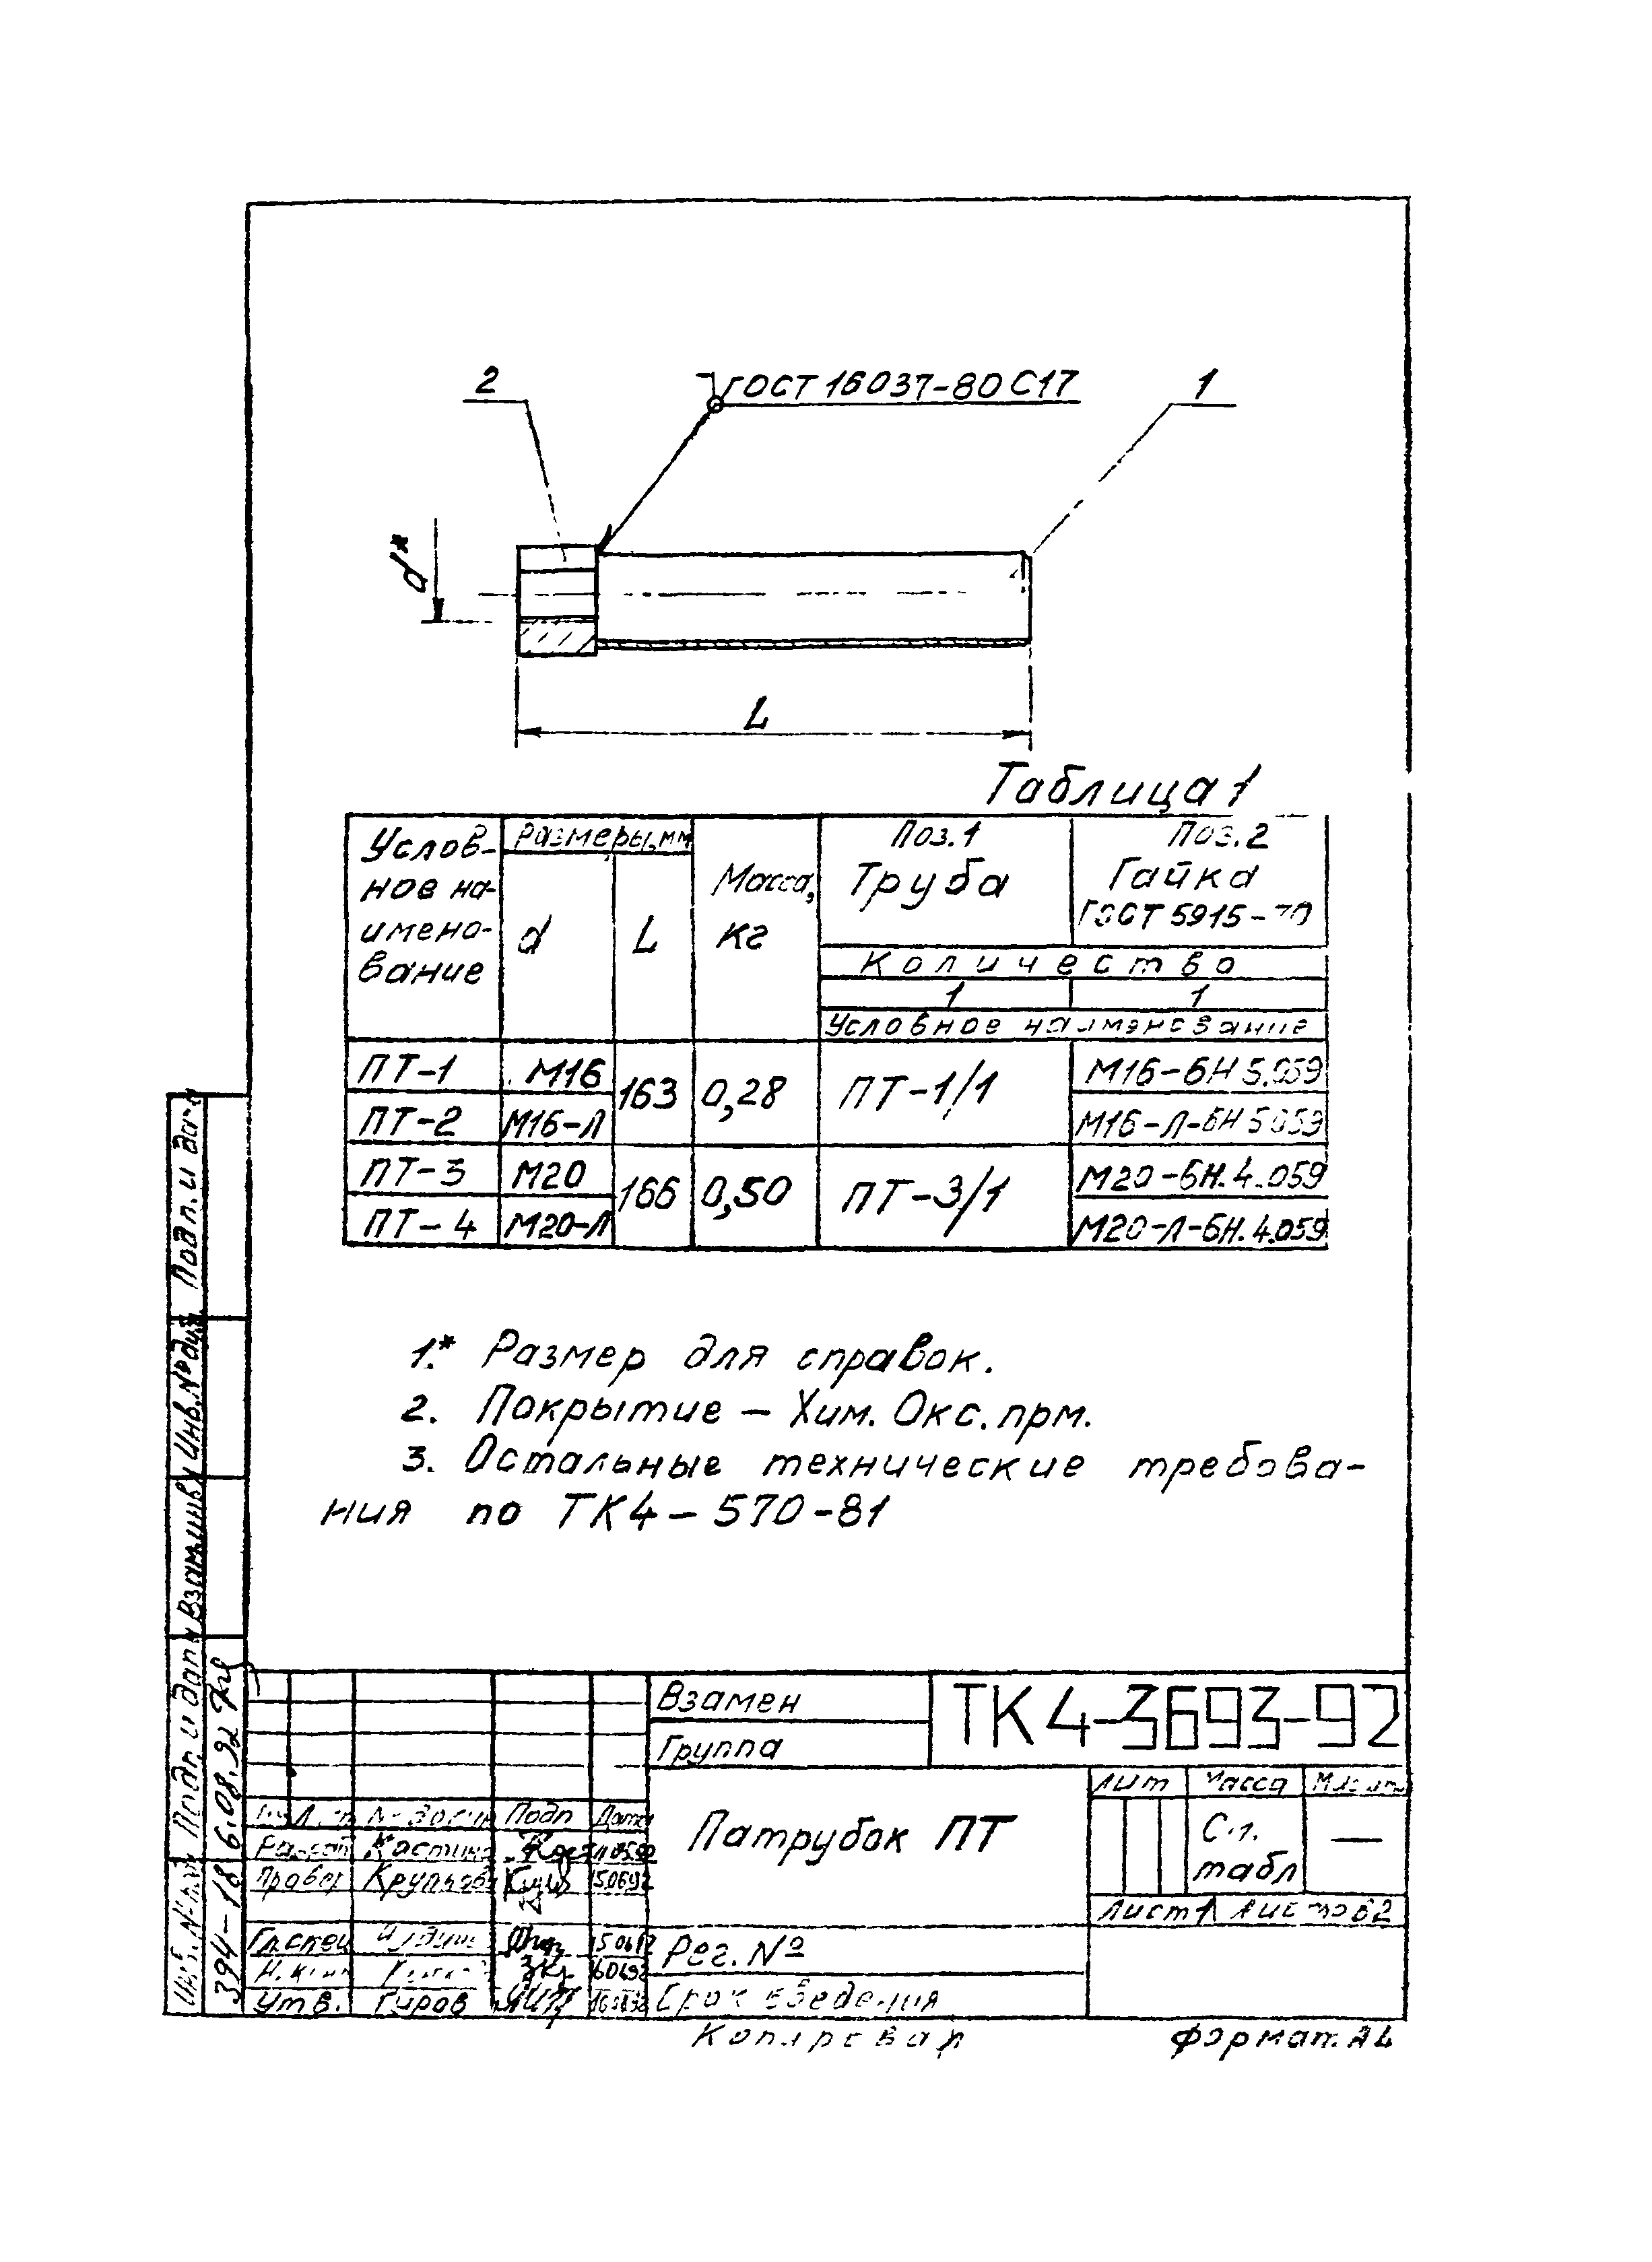 2
ГОСТ 16037-80 С17
1
d*
L
Таблица 1
Услов-
ное на-
имено-
вание
Размеры, мм
d
L
Масса,
кг
Поз.1
Труба
Поз.2
Гайка
ГОСТ 5915-70
Количество
1
1
Условное наименование
ПТ-1
М16
163
0,28
ПТ-1/1
М16-6Н 5.059
ПТ-2
М16-Л
М16-Л-6Н 5.059
ПТ-3
М20
166
0,50
ПТ-3/1
М20-6Н.4.059
ПТ-4
М20-Л
М20-Л-6Н.4.059
1.* Размер для справок.
2. Покрытие – Хим. Окс. прм.
3. Остальные технические требова-
ния по ТК4-570-81
Подп. и дата
Инв.№ дуб.
Взам.инв.№
Подп. и дата
6.08.92
Инв.№ подл.
394-18
Взамен
Группа
ТК4-3693-92
Патрубок ПТ
Лит
Масса
Масштаб
См.
табл
—
Лист 1
Листов 2
Лист
№ докум
Подп
Дата
Разраб
Костина
11.05.92
Провер
15.06.92
Гл.спец
Н.контр
Утв.
Гиров
Рег. №
Срок введения
Копировал
Формат А4